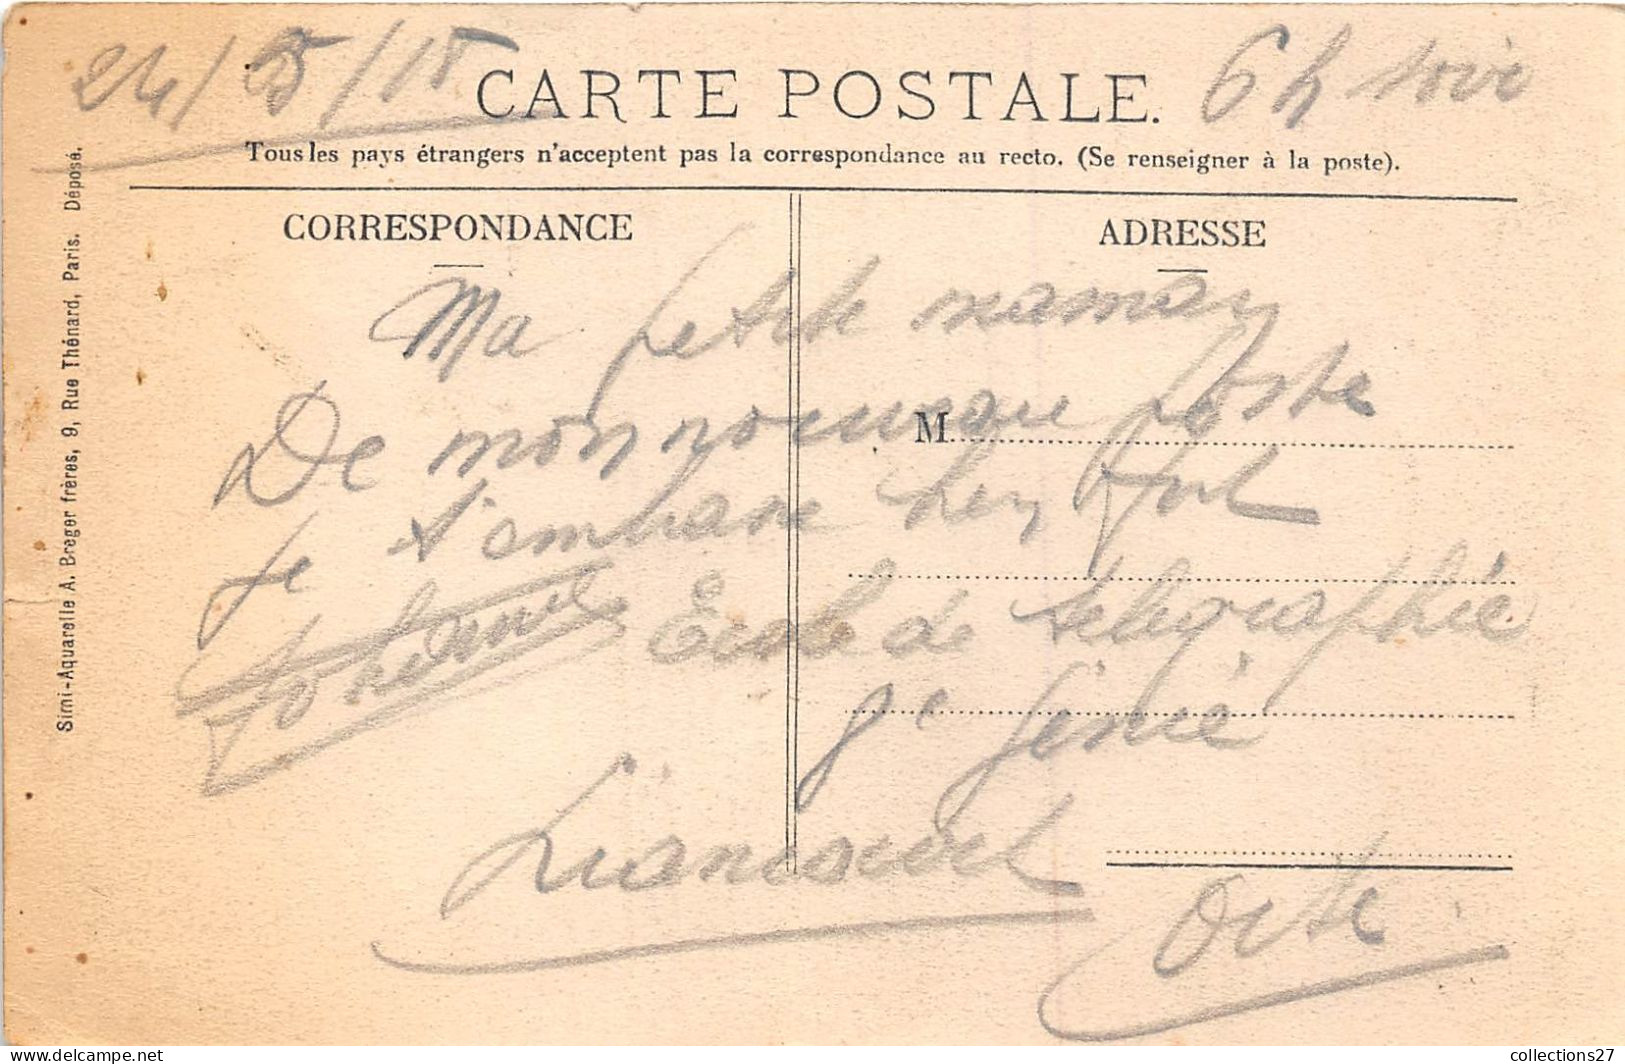 24/5/18
6 h soir
CARTE POSTALE.
Tous les pays étrangers n'acceptent pas la correspondance au recto. (Se renseigner à la poste).
CORRESPONDANCE
ADRESSE
M
Ma petite maman
De mon nouveau poste
je t'embrasse bien fort
École de télégraphie
8e Génie
Liancourt
Oise
Simi-Aquarelle A. Breger frères, 9, Rue Thénard, Paris. Déposé.
collections27